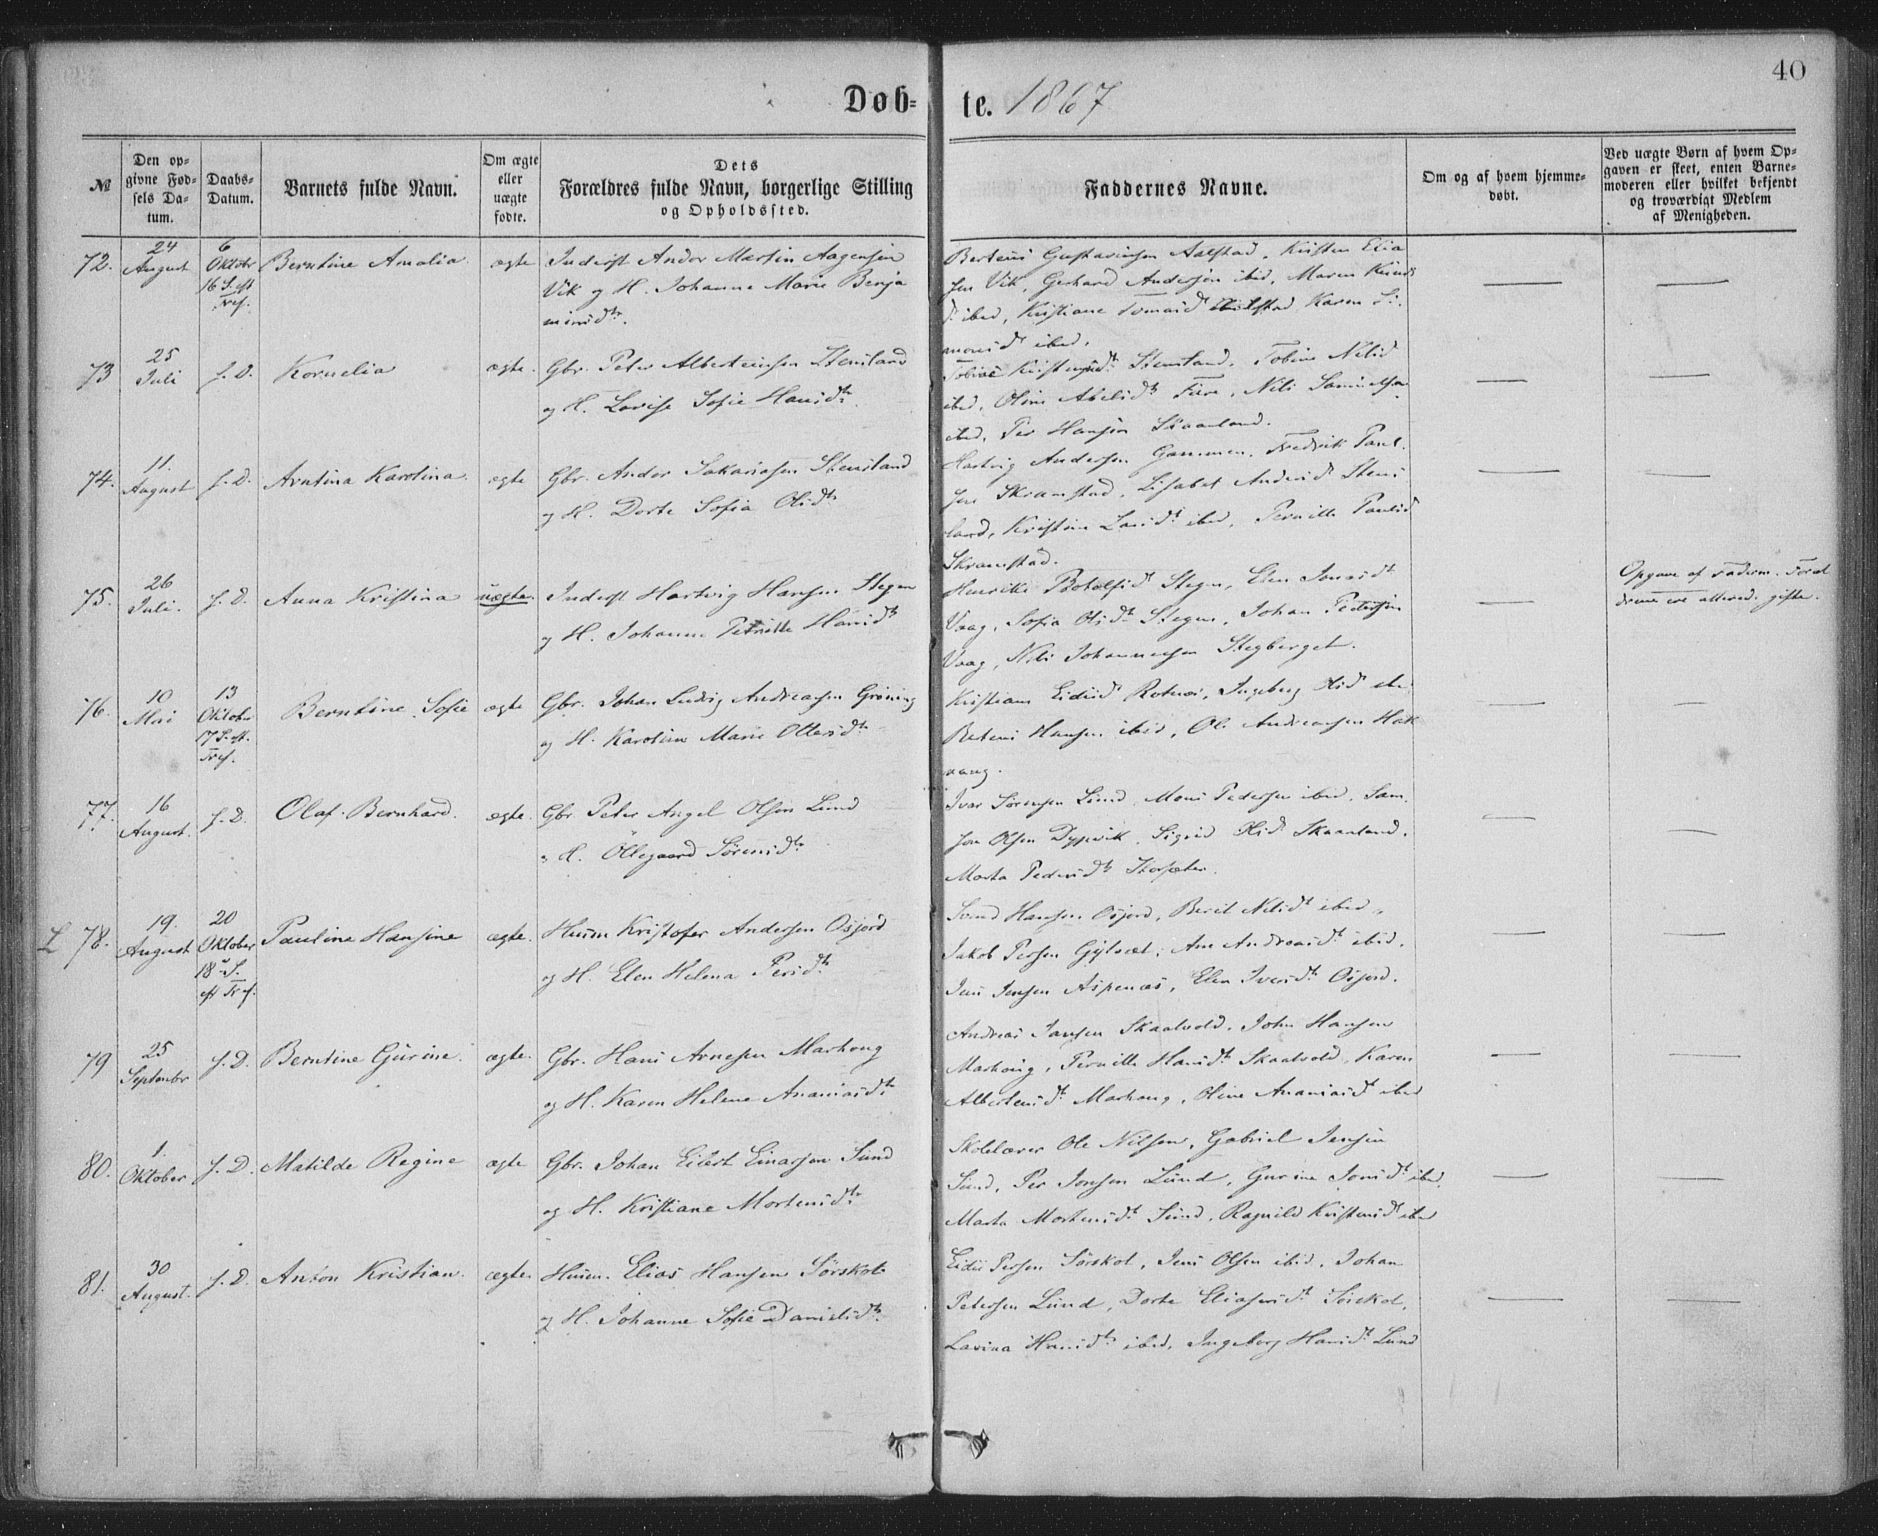 40
Døb-
te. 1867
№
Den op-
givne Fød-
sels Da-
tum.
Daabs-
Datum.
Barnets fulde Navn.
Om ægte
eller
uægte
fødte.
Dets
Forældres fulde Navn, borgerlige Stilling
og Opholdssted.
Faddernes Navne.
Om og af hvem hjemme-
døbt.
Ved uægte Børn af hvem Op-
gaven er skeet, enten Barne-
moderen eller hvilket bekjendt
og troværdigt Medlem
af Menigheden.
72.
24
August
6
Oktobr
16 S. eft
Tref.
Berntine Amalia
ægte
Inderst Andor Martin Aagensen
Vik og H. Johanna Marie Benja
minsdtr.
Berteus Gustavinsen Aalstad, Kristen Elia
sen Vik, Gerhard Andersen ibid, Maren Knuds
dt ibid, Kristiane Tomasdt Karen Si-
monsdt ibid.
73
25
Juli
s. D.
Kornelia
ægte.
Gbr. Peter Albertensen Stensland
og H. Lovise Sofie Hansdtr
Kristensdt Stensland, Tobine Nilsd
ibid, Oline Abelsdtr Fure, Nils Samuelsen
ibid, Per Hansen Skaanland.
74.
11.
August
s. D.
Arntina Karolina
ægte
Gbr. Andor Sakariasen Stensland
og H. Dorte Sofia Olsdtr
Hartvig Andersen Gammen, Fredrik Paul-
sen Skramstad, Lisabet Andersdt Stens
land, Kristine Larsdt ibid, Pernille Paulsd
Skramstad.
75.
26
Juli.
s. D.
Anna Kristina
uægte.
Inderst Hartvig Hansen Stegen
og H. Johanna Petrikke Hansdtr
Henrikke Botolfsdt Stegen, Elen Jonasdt
Vaag, Sofia Olsdtr Stegen, Johan Pedersen
Vaag, Nils Johannesen Stegberget.
Opgave af Faderen. Foræl
drene ere allered. gifte.
76.
10
Mai
13
Oktober
17 S. eft.
Tref.
Berntine Sofie
ægte
Gbr. Johan Ludvig Andreasen Grøning
og H. Karoline Marie Ottersdtr
Kristiane Eidisdt Rotnes, Ingeborg Olsdt
Hansen ibid, Ole Andreasen Hak
vaag.
77.
16
August.
s. D.
Olaf Bernhard.
ægte.
Gbr. Peter Angel Olsen Lund
og H. Ollegaard Sørensdtr
Ivar Sørensen Lund, Mons Pedersen ibid, Sam-
son Olsen Dypvik, Sigrid Olsdt Skaanland,
Marta Pedersdtr Storsæter.
L 78.
19.
August
20
Oktober
18de S.
eft Tref.
Paulina Hansine
ægte.
Husm Kristofer Andersen Osjord
og H. Elen Helena Persdtr
Svend Hansen Osjord, Berit Nilsdt ibid,
Jakob Persen Gyltset, Ane Andreasdt ibid,
Jens Jensen Aspenæs, Elen Iversdtr Osjord.
79
25
September
s. D.
Berntine Gurine.
ægte.
Gbr. Hans Arnesen Marhoug
og H. Karen Helene Ananiasdtr
Andreas Jansen Skaalvold, John Hansen
Marhoug, Pernille Hansdt Skaalvold, Karen
Albertensdt Marhoug, Oline Ananiasdt ibid
80.
1.
Oktober
s. D.
Matilde Regine
ægte
Gbr. Johan Eilert Einarsen Sund
og H. Kristiane Mortensdtr
Skolelærer Ole Nilsen, Gabriel Jensen
Sund, Per Jonsen Lund, Gurine Jonsdt ibid,
Marta Mortensdt Sund, Ragnild Kristensdt ibid
81.
30
August.
s. D.
Anton Kristian.
ægte
Husm. Elias Hansen Sørskot
og H. Johanne Sofie Danielsdtr
Eidis Persen Sørskot, Jens Olsen ibid, Johan
Petersen Lund, Dorte Eliasendt Sørskot,
Lavina Hansdtr ibid, Ingeborg Hansdt Lund